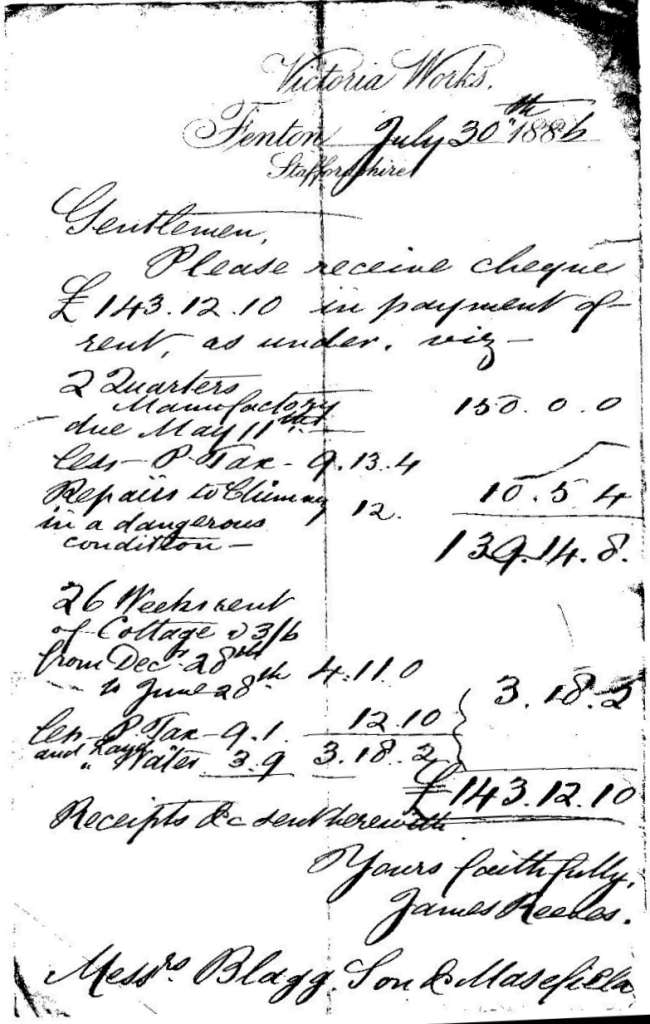 Victoria Works.
Fenton July 30th 1886
Staffordshire
Gentlemen,
Please receive cheque
£143.12.10 in payment of
rent, as under. viz —
2 Quarters
Manufactory 150.0.0
due May 11th
Less P. Tax - 9.13.4
Repairs to Chimney 12. 10.5.4
in a dangerous
condition — 139.14.8.
26 Weeks rent
of Cottage @ 3/6
from Decr 28th 4.11.0
to June 28th 3.18.2
Less P. Tax - 9.1. 12.10
and
" Water 3.9 3.18.2
£143.12.10
Receipts &c sent herewith
Yours faithfully,
James Reeves.
Messrs Blagg, Son & Masefield